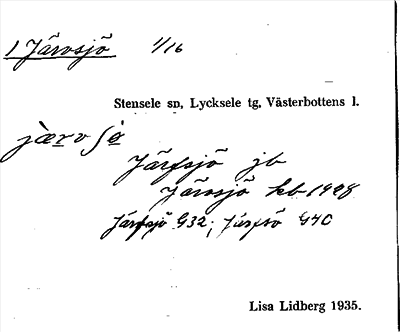 1 Järvsjö 1/16
Stensele sn, Lycksele tg, Västerbottens l.
Järfsjö jb
Järvsjö kb 1928
Järfsjö G32; Järfsö G40
Lisa Lidberg 1935.